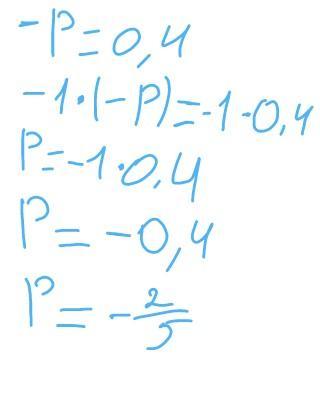 -p=0,4
-1·(-p)=-1·0,4
p=-1·0,4
p=-0,4
p=-2/5